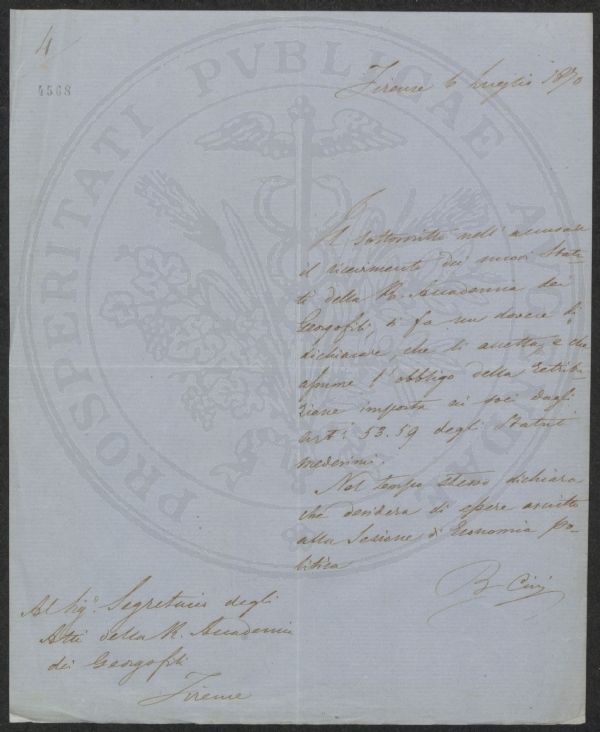 4
4568
Firenze 6 Luglio 1870
Il sottoscritto nell' accusare
il ricevimento dei nuovi Statu-
ti della R. Accademia dei
Georgofili, si fa un dovere di
dichiarare, che li accetta, e che
assume l' obbligo della retribu-
zione imposta ai soci dagli
Art.i 53. 59 degli Statuti
medesimi.
Nel tempo stesso dichiara
che desidera di essere ascritto
alla Sezione di Economia po-
litica
B
Al Sig.r Segretario degli
Atti della R. Accademia
dei Georgofili
Firenze
PROSPERITATI PVBLICAE